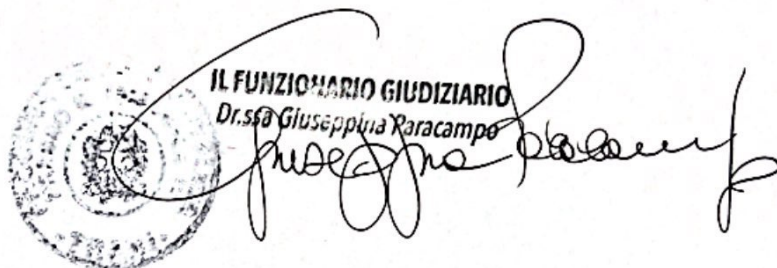 IL FUNZIONARIO GIUDIZIARIO
Dr.ssa Giuseppina Paracampo
Giuseppina Paracampo